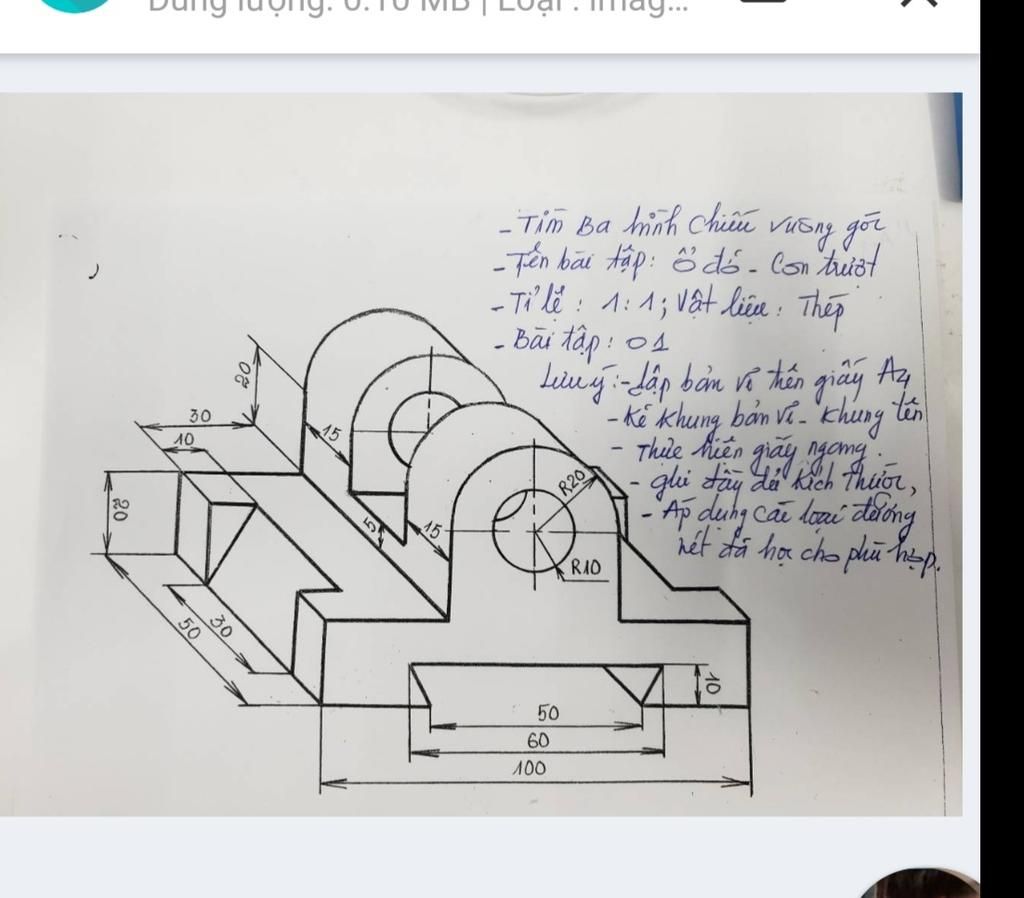 Dung lượng: 6.10 MB | Loại : imag...
- Tìm Ba hình chiếu vuông góc
- Tên bài tập: Ổ đỡ - Con trượt
- Tỉ lệ : 1:1; Vật liệu: Thép
- Bài tập : 01
Lưu ý: - lập bản vẽ trên giấy A4
- Kẻ khung bản vẽ - khung tên
- Thực hiện giấy ngang.
- ghi đầy đủ kích thước,
- Áp dụng các loại đường
nét đã học cho phù hợp.
20
30
10
15
20
5
15
R20
R10
30
50
10
50
60
100